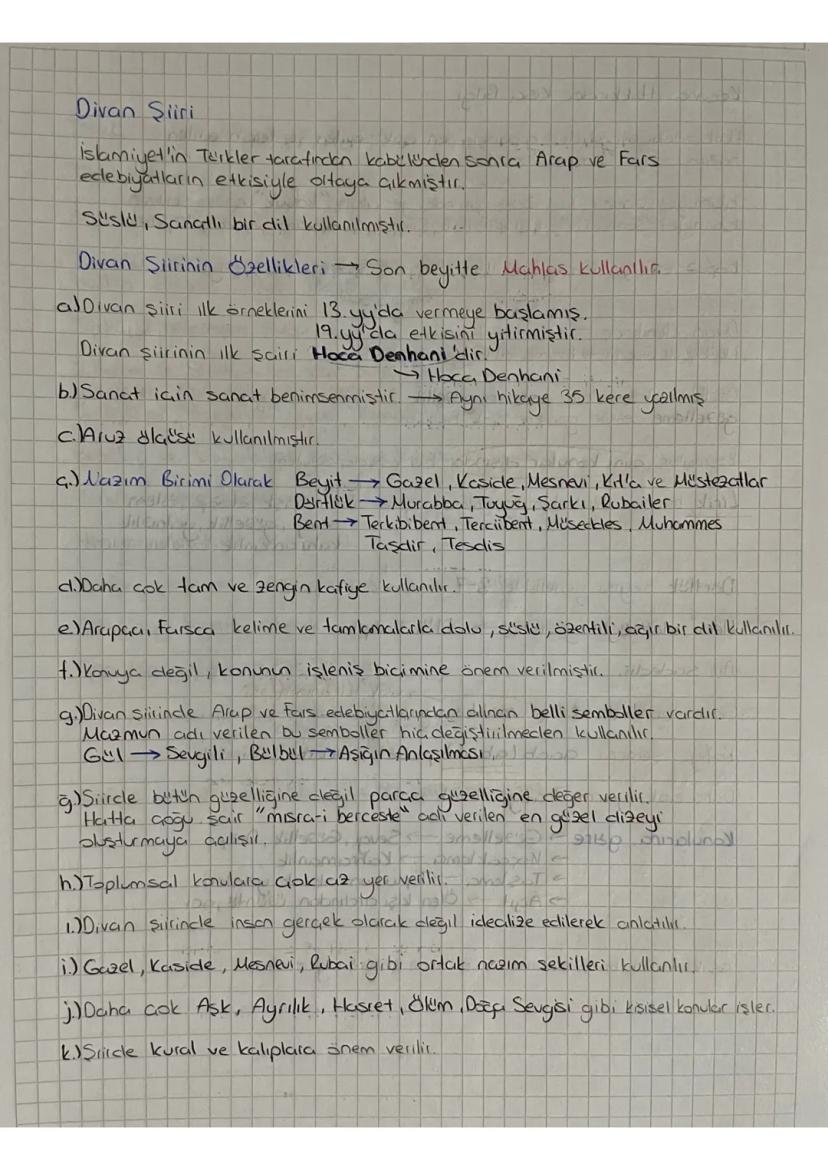 Divan Şiiri
İslamiyet'in Türkler tarafından kabülünden sonra Arap ve Fars
edebiyatların etkisiyle ortaya çıkmıştır.
Süslü, Sanatlı bir dil kullanılmıştır.
Divan Şiirinin Özellikleri → Son beyitte Mahlas kullanılır.
a.)Divan şiiri ilk örneklerini 13.yy'da vermeye başlamış.
19.yy'da etkisini yitirmiştir.
Divan şiirinin ilk şairi Hoca Denhani'dir.
→ Hoca Denhani
b.)Sanat için sanat benimsenmiştir. → Aynı hikaye 35 kere yazılmış
c.)Aruz ölçüsü kullanılmıştır.
ç.) Nazım Birimi Olarak Beyit → Gazel, Kaside, Mesnevi, Kıt'a ve Müstezatlar
Dörtlük → Murabba, Tuyuğ, Şarkı, Rubailer
Bent → Terkibibent, Terciibent, Müseddes, Muhammes
Taşdir, Tesdis
d.)Daha çok tam ve zengin kafiye kullanılır.
e.)Arapça, Farsça kelime ve tamlamalarla dolu, süslü, özentili, ağır bir dil kullanılır.
f.)Konuya değil, konunun işleniş biçimine önem verilmiştir.
g.)Divan şiirinde Arap ve Fars edebiyatlarından alınan belli semboller vardır.
Mazmun adı verilen bu semboller hiç değiştirilmeden kullanılır.
Gül → Sevgili, Bülbül → Aşığın Anlaşılması
ğ.)Şiirde bütün güzelliğine değil parça güzelliğine değer verilir.
Hatta çoğu şair "mısra-i berceste" adı verilen en güzel dizeyi
oluşturmaya çalışır.
h.)Toplumsal konulara çok az yer verilir.
ı.)Divan şiirinde insan gerçek olarak değil idealize edilerek anlatılır.
i.) Gazel, Kaside, Mesnevi, Rubai gibi ortak nazım şekilleri kullanılır.
j.)Daha çok Aşk, Ayrılık, Hasret, Ölüm, Doğa Sevgisi gibi kişisel konular işler.
k.)Şiirde kural ve kalıplara önem verilir.